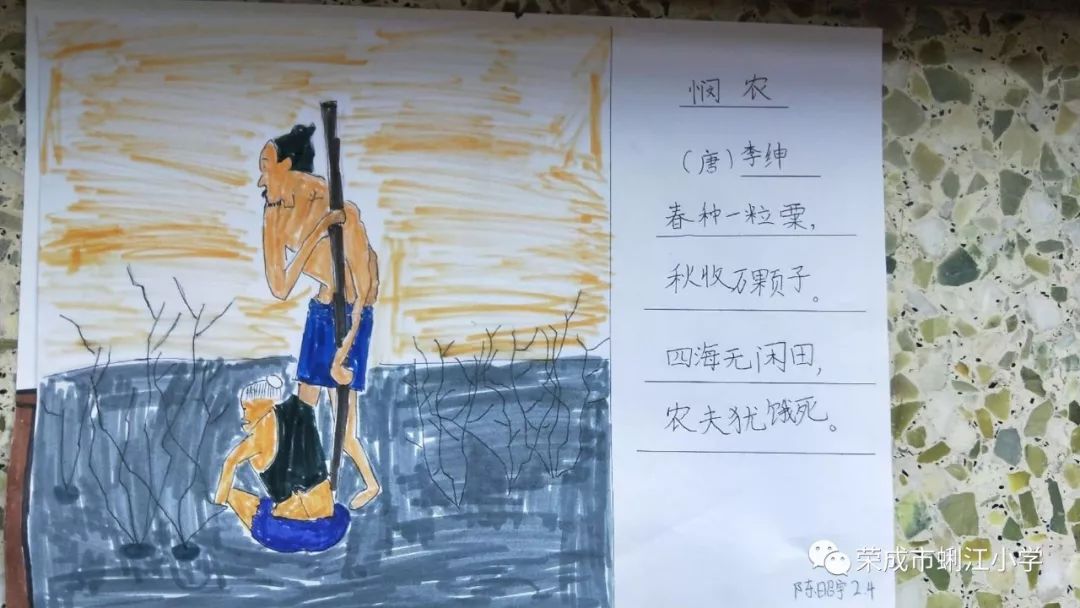 悯农
(唐)李绅
春种一粒粟,
秋收万颗子。
四海无闲田,
农夫犹饿死。
荣成市蜊江小学
陈昭宇 2.4